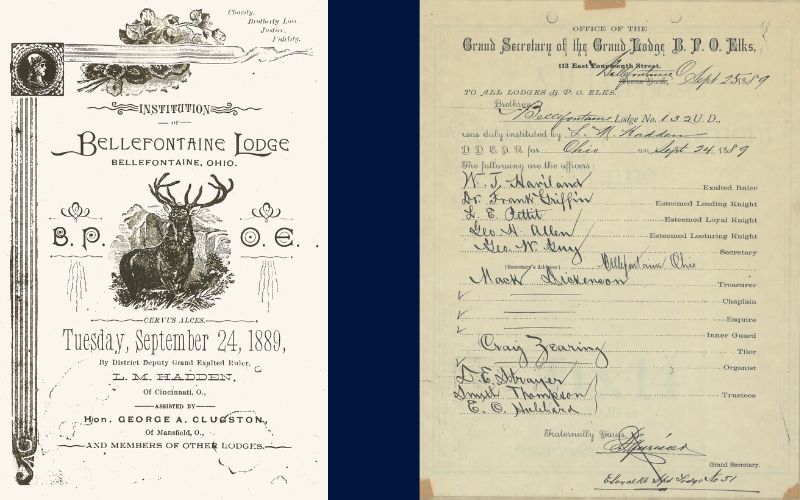 Charity,
Brotherly Love
Justice,
Fidelity.
INSTITUTION
OF
BELLEFONTAINE LODGE
BELLEFONTAINE, OHIO.
B. P. O. E.
CERVUS ALCES.
Tuesday, September 24, 1889,
By District Deputy Grand Exalted Ruler,
L. M. HADDEN,
Of Cincinnati, O.,
ASSISTED BY
Hon. GEORGE A. CLUGSTON,
Of Mansfield, O.,
AND MEMBERS OF OTHER LODGES.
OFFICE OF THE
Grand Secretary of the Grand Lodge B. P. O. Elks,
113 East Fourteenth Street.
Bellefontaine O Sept 25 1889
TO ALL LODGES B. P. O. ELKS.
Brothers:
Bellefontaine Lodge No. 132 U. D.,
was duly instituted by L. M. Hadden
D D E G R for Ohio on Sept 24 1889
The following are the officers:
W. T. Haviland Exalted Ruler
Dr. Frank Griffin Esteemed Leading Knight
L. E. Pettit Esteemed Loyal Knight
Geo. H. Allen Esteemed Lecturing Knight
Geo. W. Guy Secretary
(Secretary's Address) Bellefontaine Ohio
Mack Dickenson Treasurer
Chaplain
Esquire
Inner Guard
Craig Zearing Tiler
Organist
D. E. Strayer
Smith Thompson Trustees
E. O. Hubbard
Fraternally Yours,
Grand Secretary.
Lodge No 51